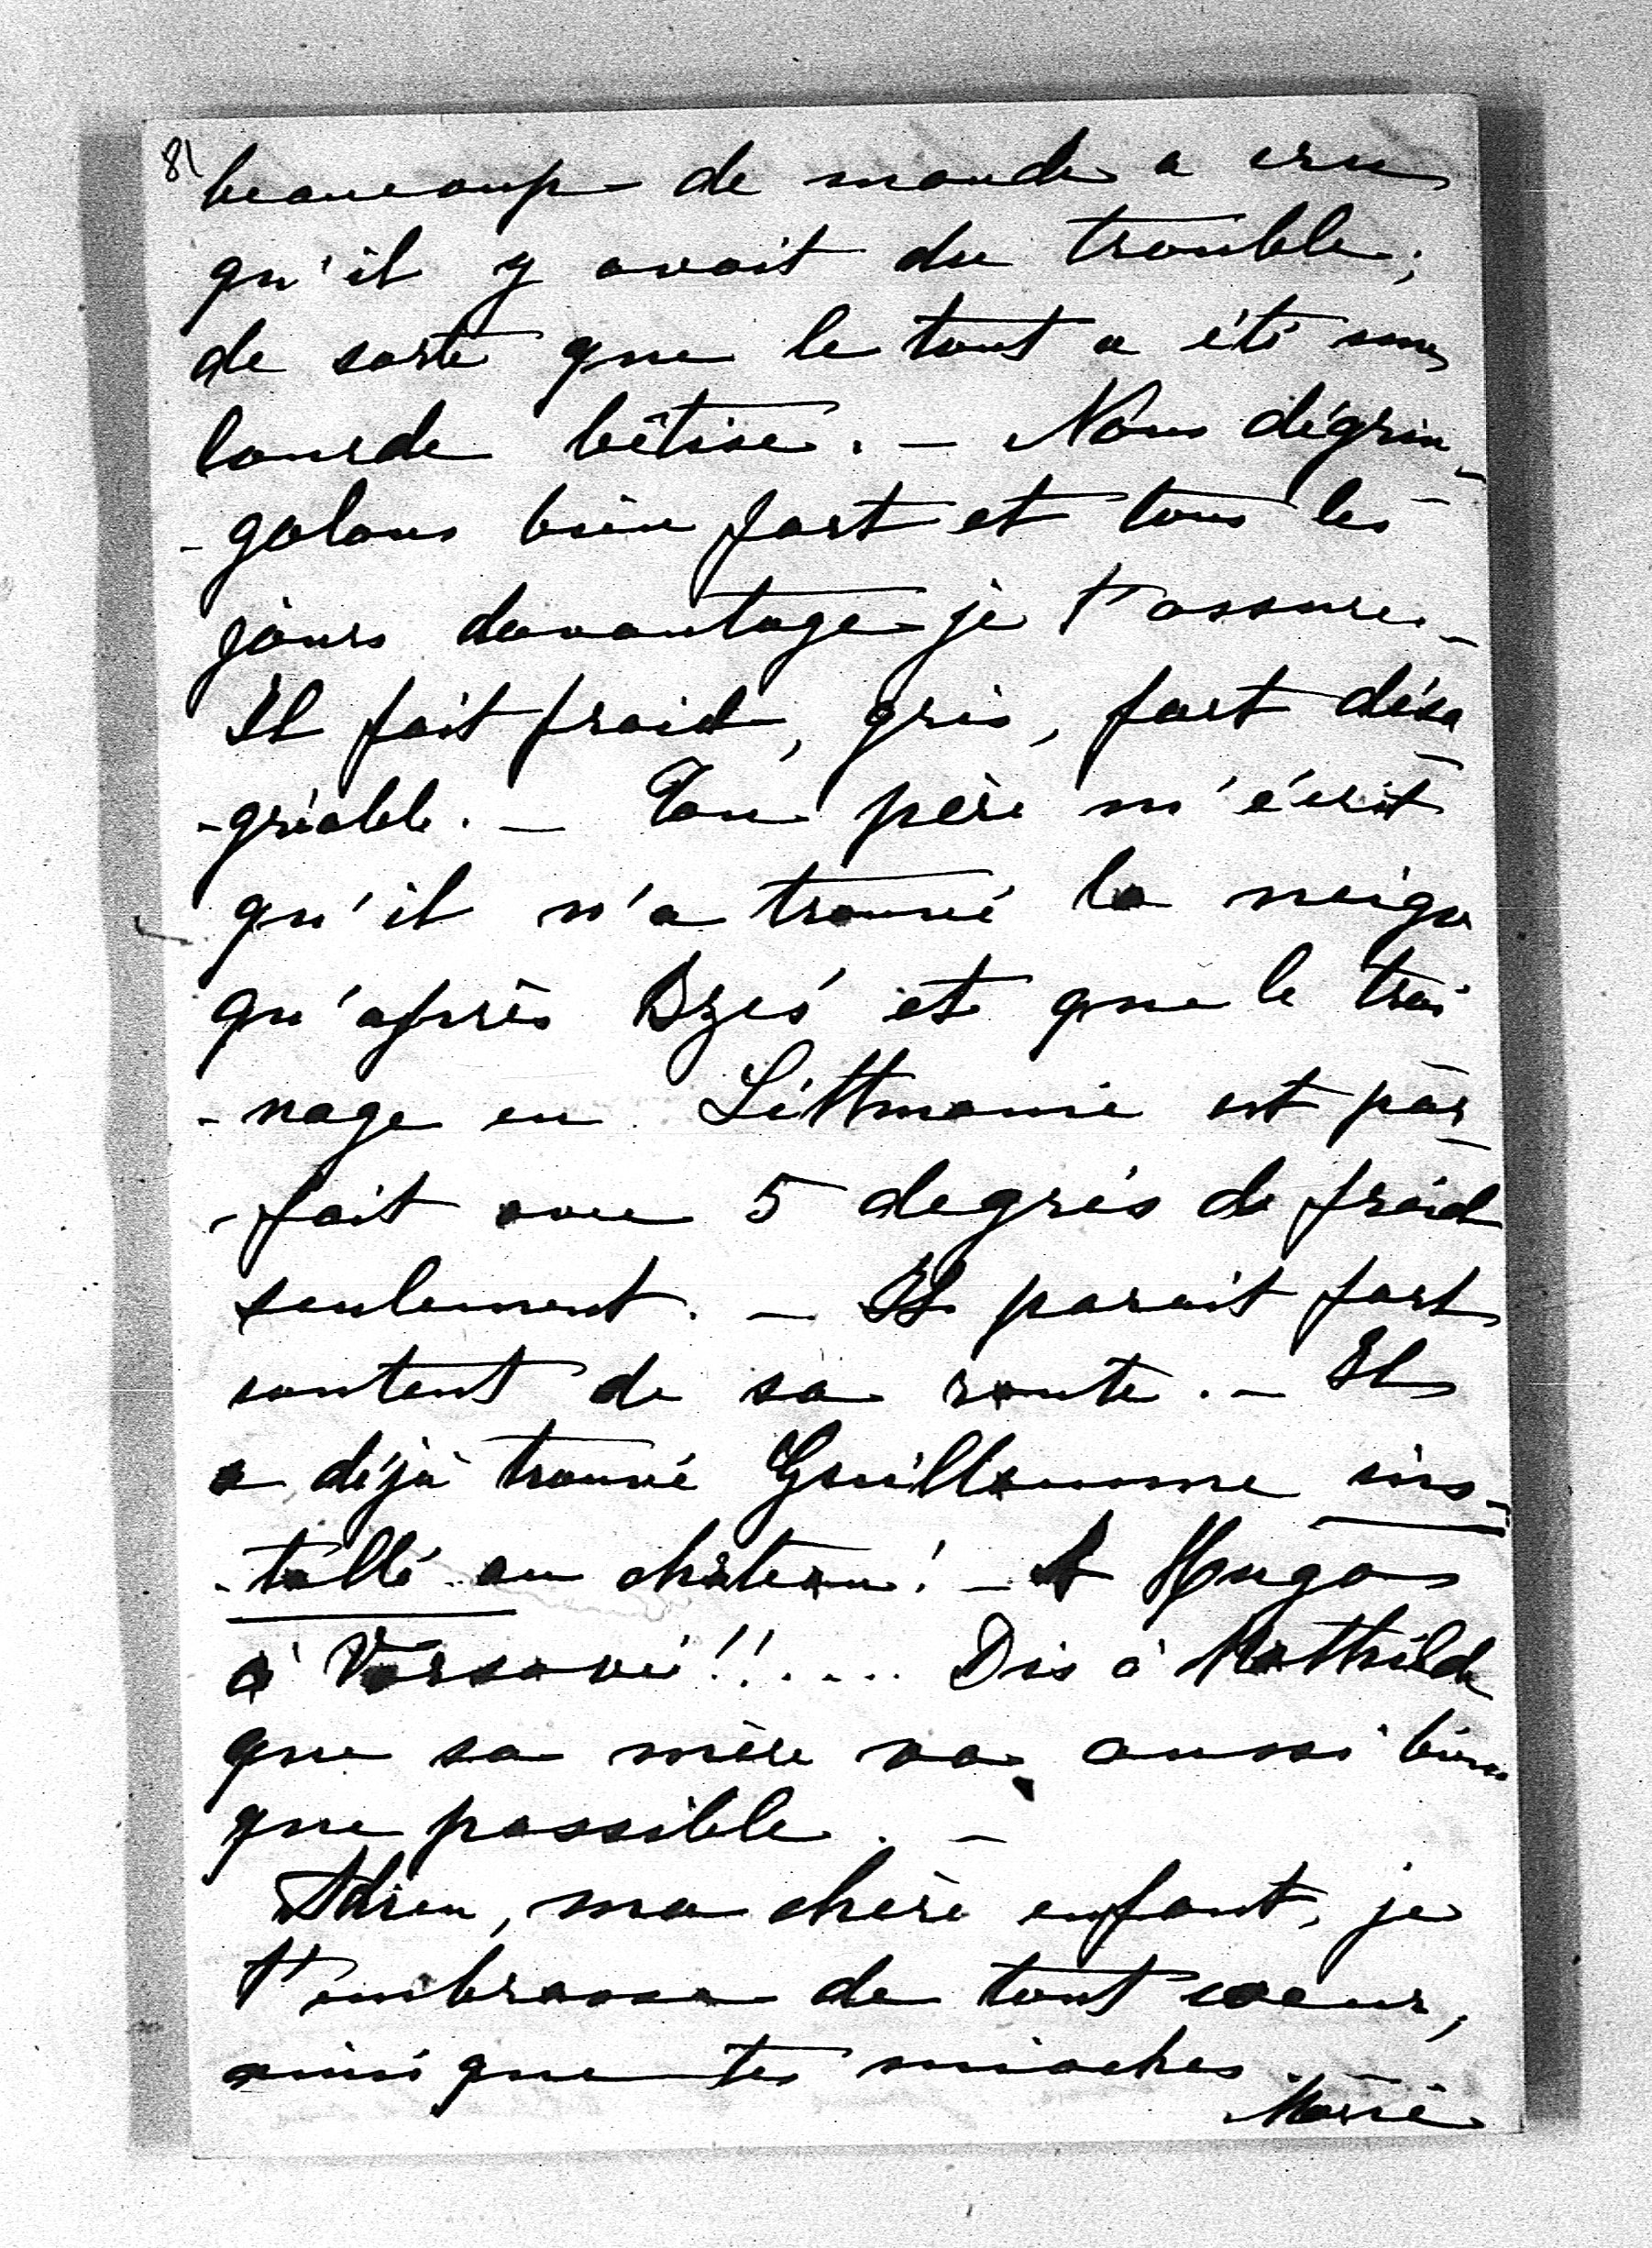 8)
beaucoup de monde a cru
qu'il y avait du trouble;
de sorte que le tout a été une
lourde bêtise. — Nous dégrin-
-golons bien fort et tous les
jours davantage je t'assure. —
Il fait froid, gris, fort désa-
-gréable. — Ton père m'écrit
qu'il n'a trouvé la neige
qu'après Brześć et que le traî
-nage en Litthuanie est par-
-fait avec 5 degrés de froid
seulement. — Il parait fort
content de sa route. — Il
a déjà trouvé Guillaume ins-
-tallé au château! — A Hugo
à Varsovie!!.... Dis à Mathilde
que sa mère va aussi bien
que possible. —
Adieu, ma chère enfant, je
t'embrasse de tout coeur,
ainsi que tes mioches.
Marie